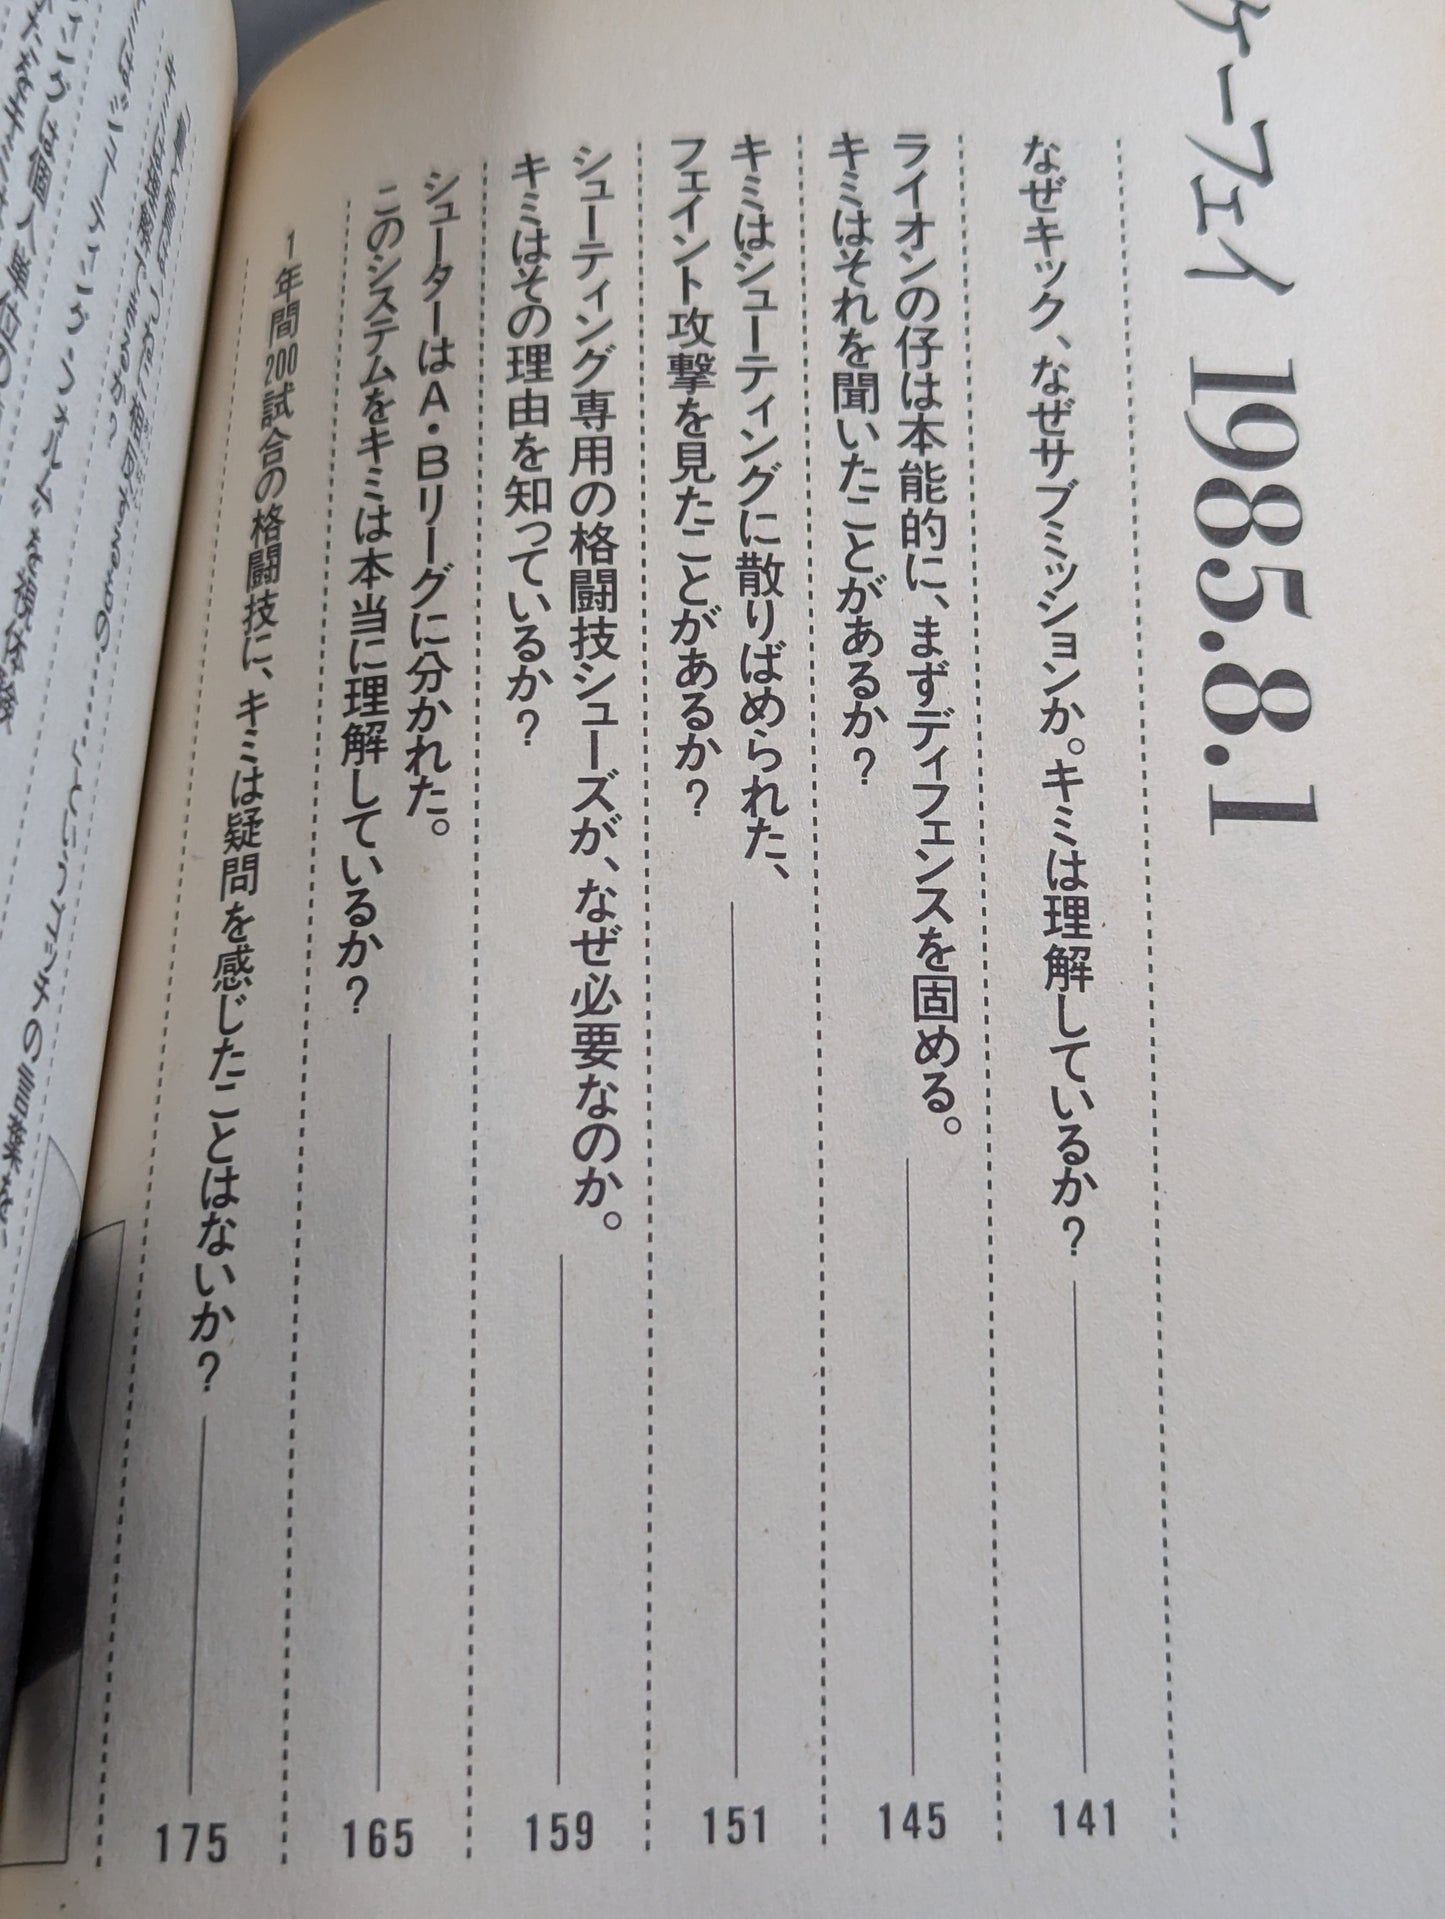 ケーフェイ 1985.8.1
なぜキック、なぜサブミッションか。キミは理解しているか？ 141
ライオンの仔は本能的に、まずディフェンスを固める。
キミはそれを聞いたことがあるか？ 145
キミはシューティングに散りばめられた、
フェイント攻撃を見たことがあるか？ 151
シューティング専用の格闘技シューズが、なぜ必要なのか。
キミはその理由を知っているか？ 159
シューターはA・Bリーグに分かれた。
このシステムをキミは本当に理解しているか？ 165
1年間200試合の格闘技に、キミは疑問を感じたことはないか？ 175